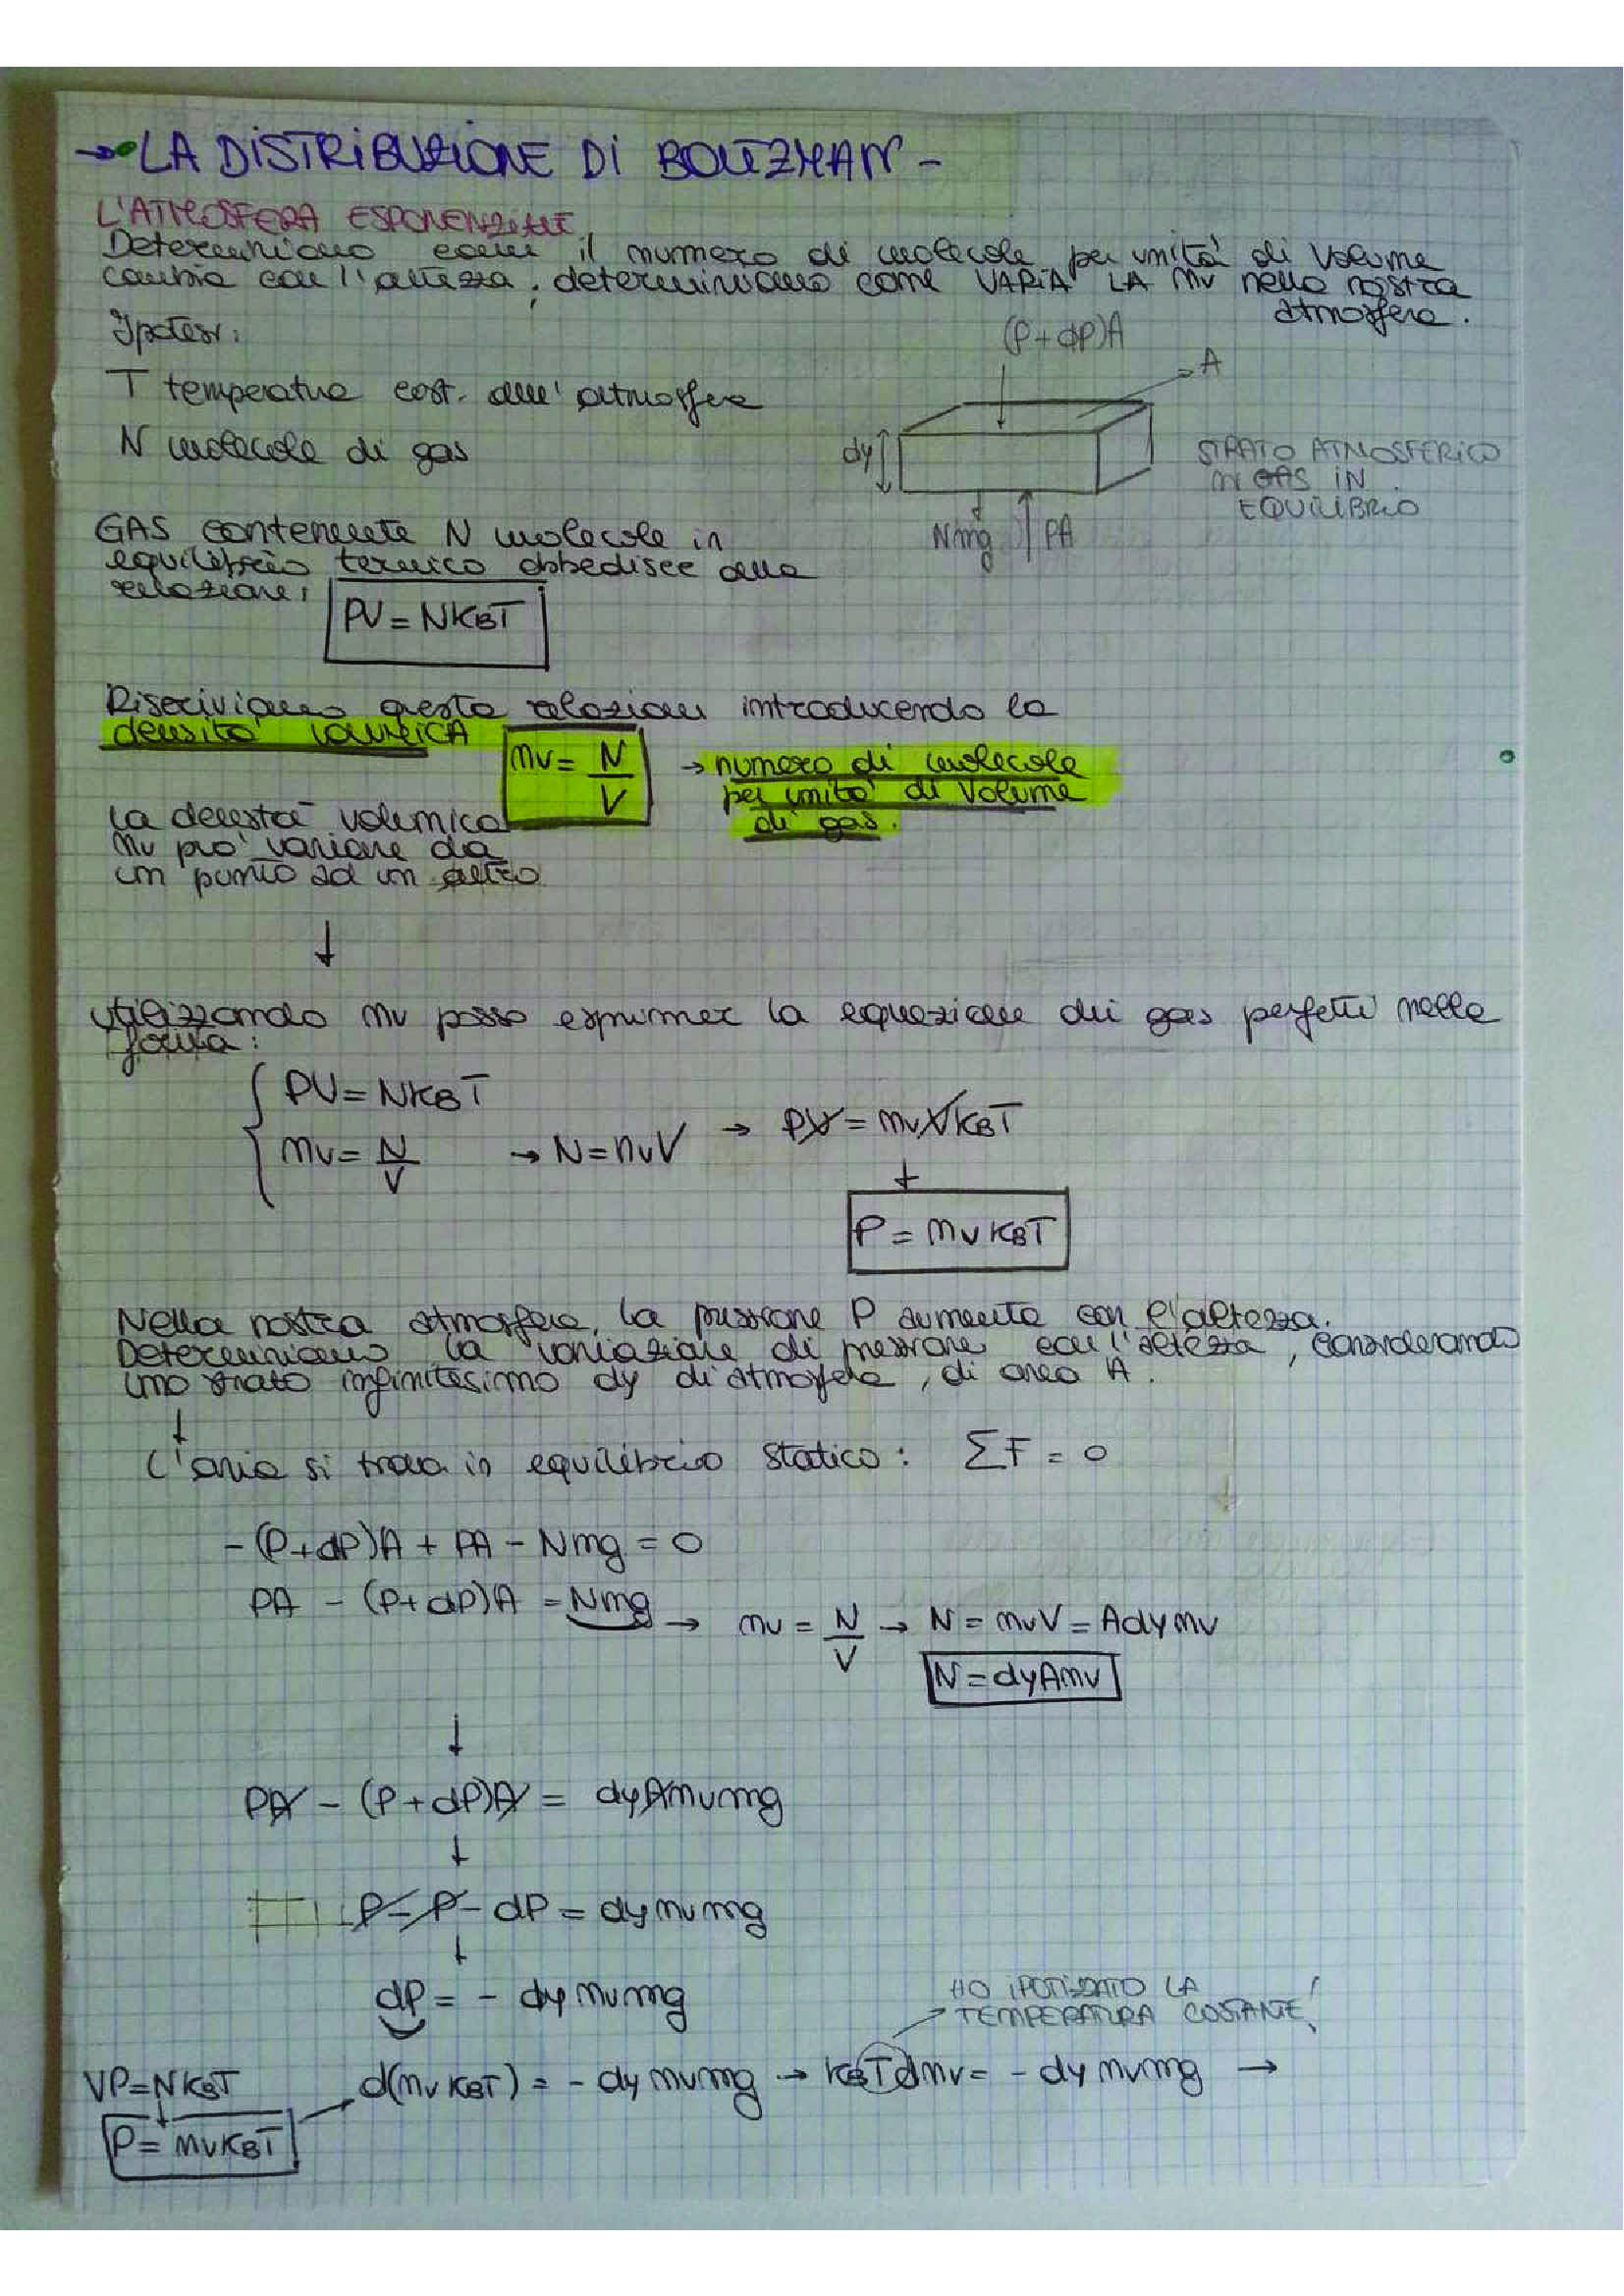 →• LA DISTRIBUZIONE DI BOLTZMAN -
L'ATMOSFERA ESPONENZIALE
Determiniamo come il numero di molecole per unità di Volume
cambia con l'altezza, determiniamo come VARIA LA nv nella nostra
atmosfera.
Ipotesi:
T temperatura cost. dell'atmosfera
N molecole di gas
(P+dP)A
A
dy
STRATO ATMOSFERICO
GAS IN
EQUILIBRIO
Nmg PA
GAS contenente N molecole in
equilibrio termico obbedisce alla
relazione:
PV = NKBT
Riscriviamo questa relazione introducendo la
densità VOLUMICA
nv = N/V → numero di molecole
per unità di Volume
di gas.
La densità volumica
nv può variare da
un punto ad un altro
↓
Utilizzando nv posso esprimere la equazione dei gas perfetti nella
forma:
PV = NKBT
nv = N/V → N = nvV → PV = nvVKBT
↓
P = nvKBT
Nella nostra atmosfera, la pressione P aumenta con l'altezza.
Determiniamo la variazione di pressione con l'altezza, considerando
uno strato infinitesimo dy di atmosfera, di area A.
↓
L'aria si trova in equilibrio statico: ΣF = 0
-(P+dP)A + PA - Nmg = 0
PA - (P+dP)A = Nmg → nv = N/V → N = nvV = Adynv
N = dyAnv
↓
PA - (P+dP)A = dyAnvmg
↓
P - P - dP = dynvmg
↓
dP = - dynvmg
HO IPOTIZZATO LA
TEMPERATURA COSTANTE!
VP = NKBT
d(nvKBT) = - dynvmg → KBTdnv = - dynvmg →
↓
P = nvKBT